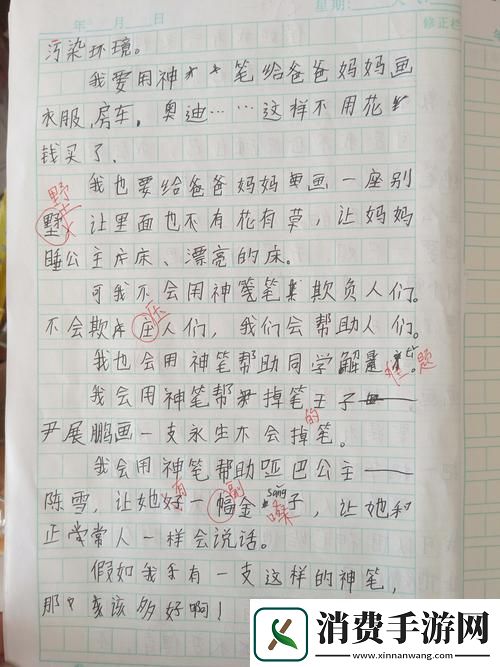 年 月 日 星期:
修正栏
污染环境。
我要用神笔给爸爸妈妈画
衣服、房车、奥迪……这样不用花
钱买了、
野
我也要给爸爸妈妈画一座别
墅,让里面也不有花有草,让妈妈
睡公主床、漂亮的床。
可我不会用神笔欺负人们。
压
不会欺庄人们,我们会帮助人们。
我也会用神笔帮助同学解
难题
我会用神笔帮掉笔王子——
的
尹展鹏画一支永生不会掉笔。
我会用神笔帮助哑巴公主——
有 副 sǎng
陈雪,让她好一幅金嗓子,让她和
正常人一样会说话。
假如我有一支这样的神笔,
那该多好啊!
消费手游网
www.xinnanwang.com